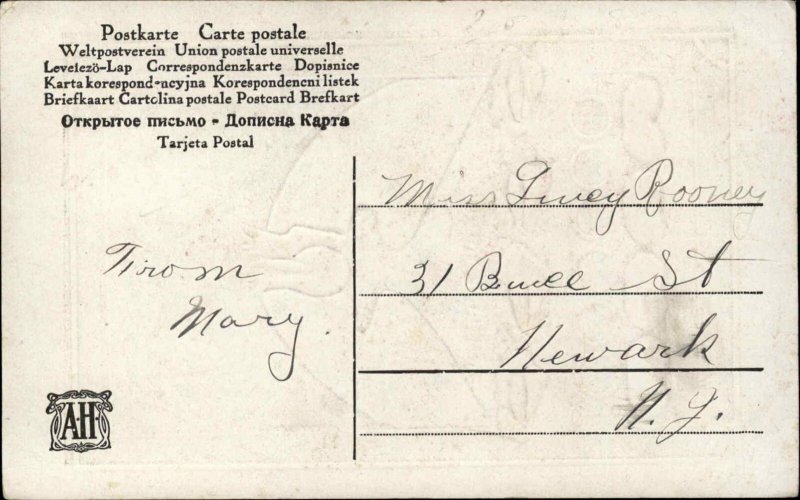 Postkarte Carte postale
Weltpostverein Union postale universelle
Levelezö-Lap Correspondenzkarte Dopisnice
Karta korespondencyjna Korespondencni listek
Briefkaart Cartolina postale Postcard Brefkart
Открытое письмо - Дописна Карта
Tarjeta Postal
Miss Rooney
31 St
Newark
N. J.
From
Mary.
AH